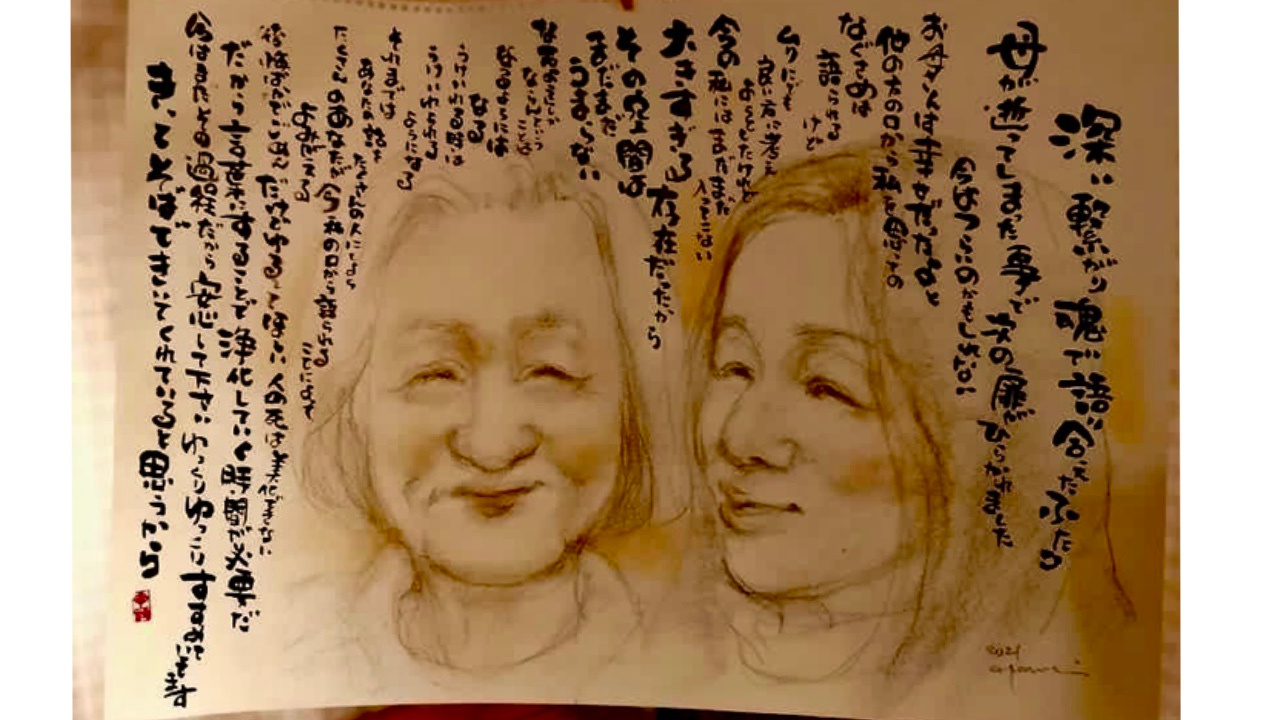 深い繋がり 魂で語い合えたふたり
母が逝ってしまった事で 次の扉がひらかれました
今はつらいのかもしれない
お母さんは幸せだったなぁと
他の方の口から私を思っての
なぐさめは
語られる
けど
ムリにでも
良い方に考え
ようとしたけれど
今の私にはまだまだ
入ってこない
大きすぎる存在だったから
その空間は
まだまだ
うまらない
なるようにしか
ならないという
ことは
なるようには
なる
うけいれる時は
うけいれられる
ようになる
それまでは
あなたの話を
たくさんの人にしよう
たくさんのあなたが 今 私の口から語られる
ことによって
よみがえる
後悔ばかりでごめん だけどゆるしてほしい 人の死は美化できない
だから言葉にすることで浄化していく時間が必要だ
今はまだその過程だから 安心して下さい ゆっくりゆっくりすすめていきます
きっとそばできいてくれていると思うから
2021